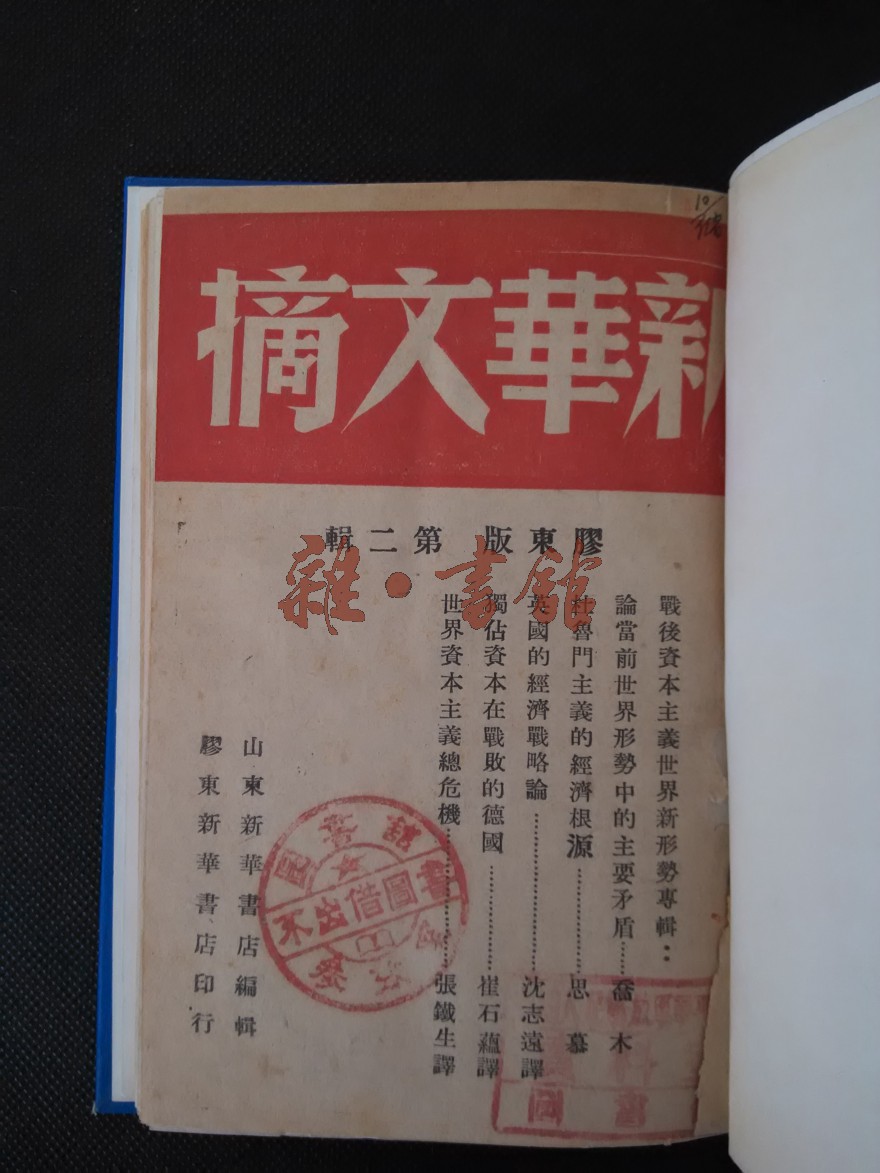 新華文摘
膠東版 第二輯
戰後資本主義世界新形勢專輯：
論當前世界形勢中的主要矛盾……喬木
杜魯門主義的經濟根源………思慕
英國的經濟戰略論………沈志遠譯
獨佔資本在戰敗的德國………崔石蘊譯
世界資本主義總危機………張鐵生譯
山東新華書店編輯
膠東新華書店印行
雜·書館
不出借圖書